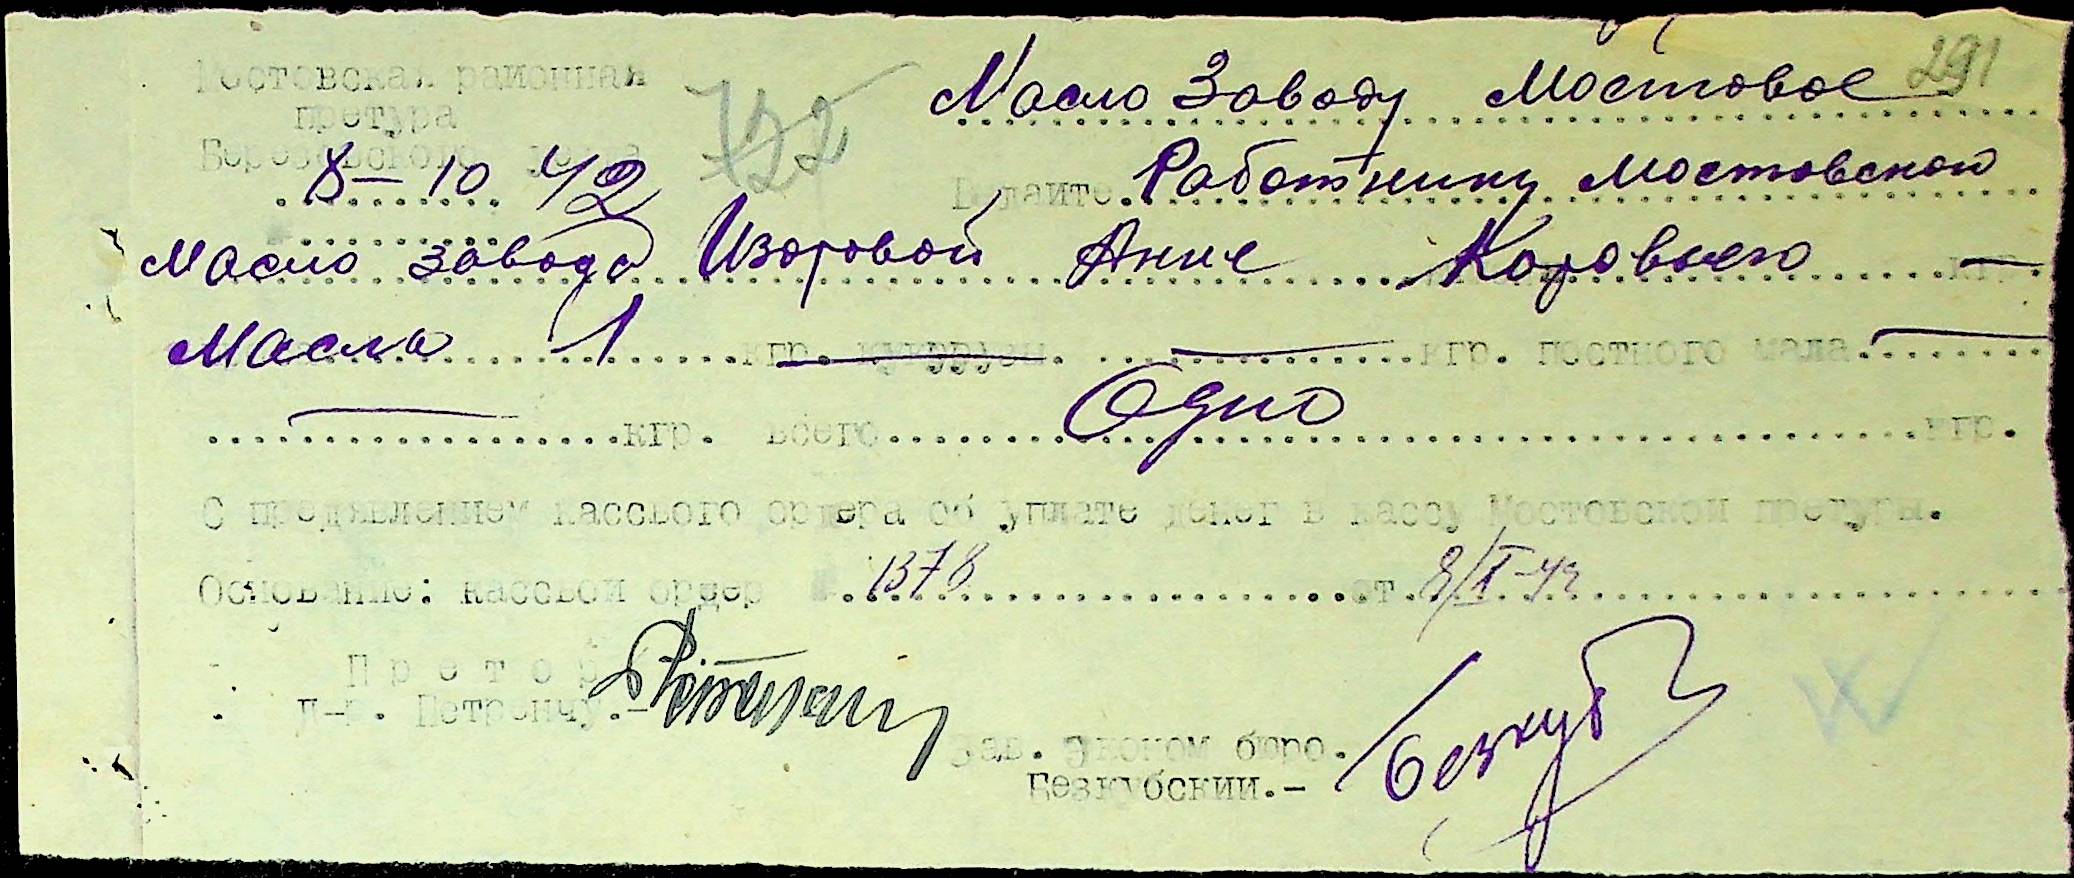 Мостовская районная
претура
Березовского уезда
8-10 42
722
291
Масло Заводу Мостовое
Выдайте. Работнику Мостовской
Масло завода Изотовой Анне Коровьего кгр.
Масла 1 кгр. кукурузы. кгр. постного мала.
кгр. всего Одно кгр.
С предявлением кассвого ордера об уплате денег в кассу Мостовской претуры.
Основание: кассвой ордер № 1378 от 8/X-42
Претор
Д-р. Петренчу.-
Зав. эконом бюро.
Безкубский.-
Безкуб